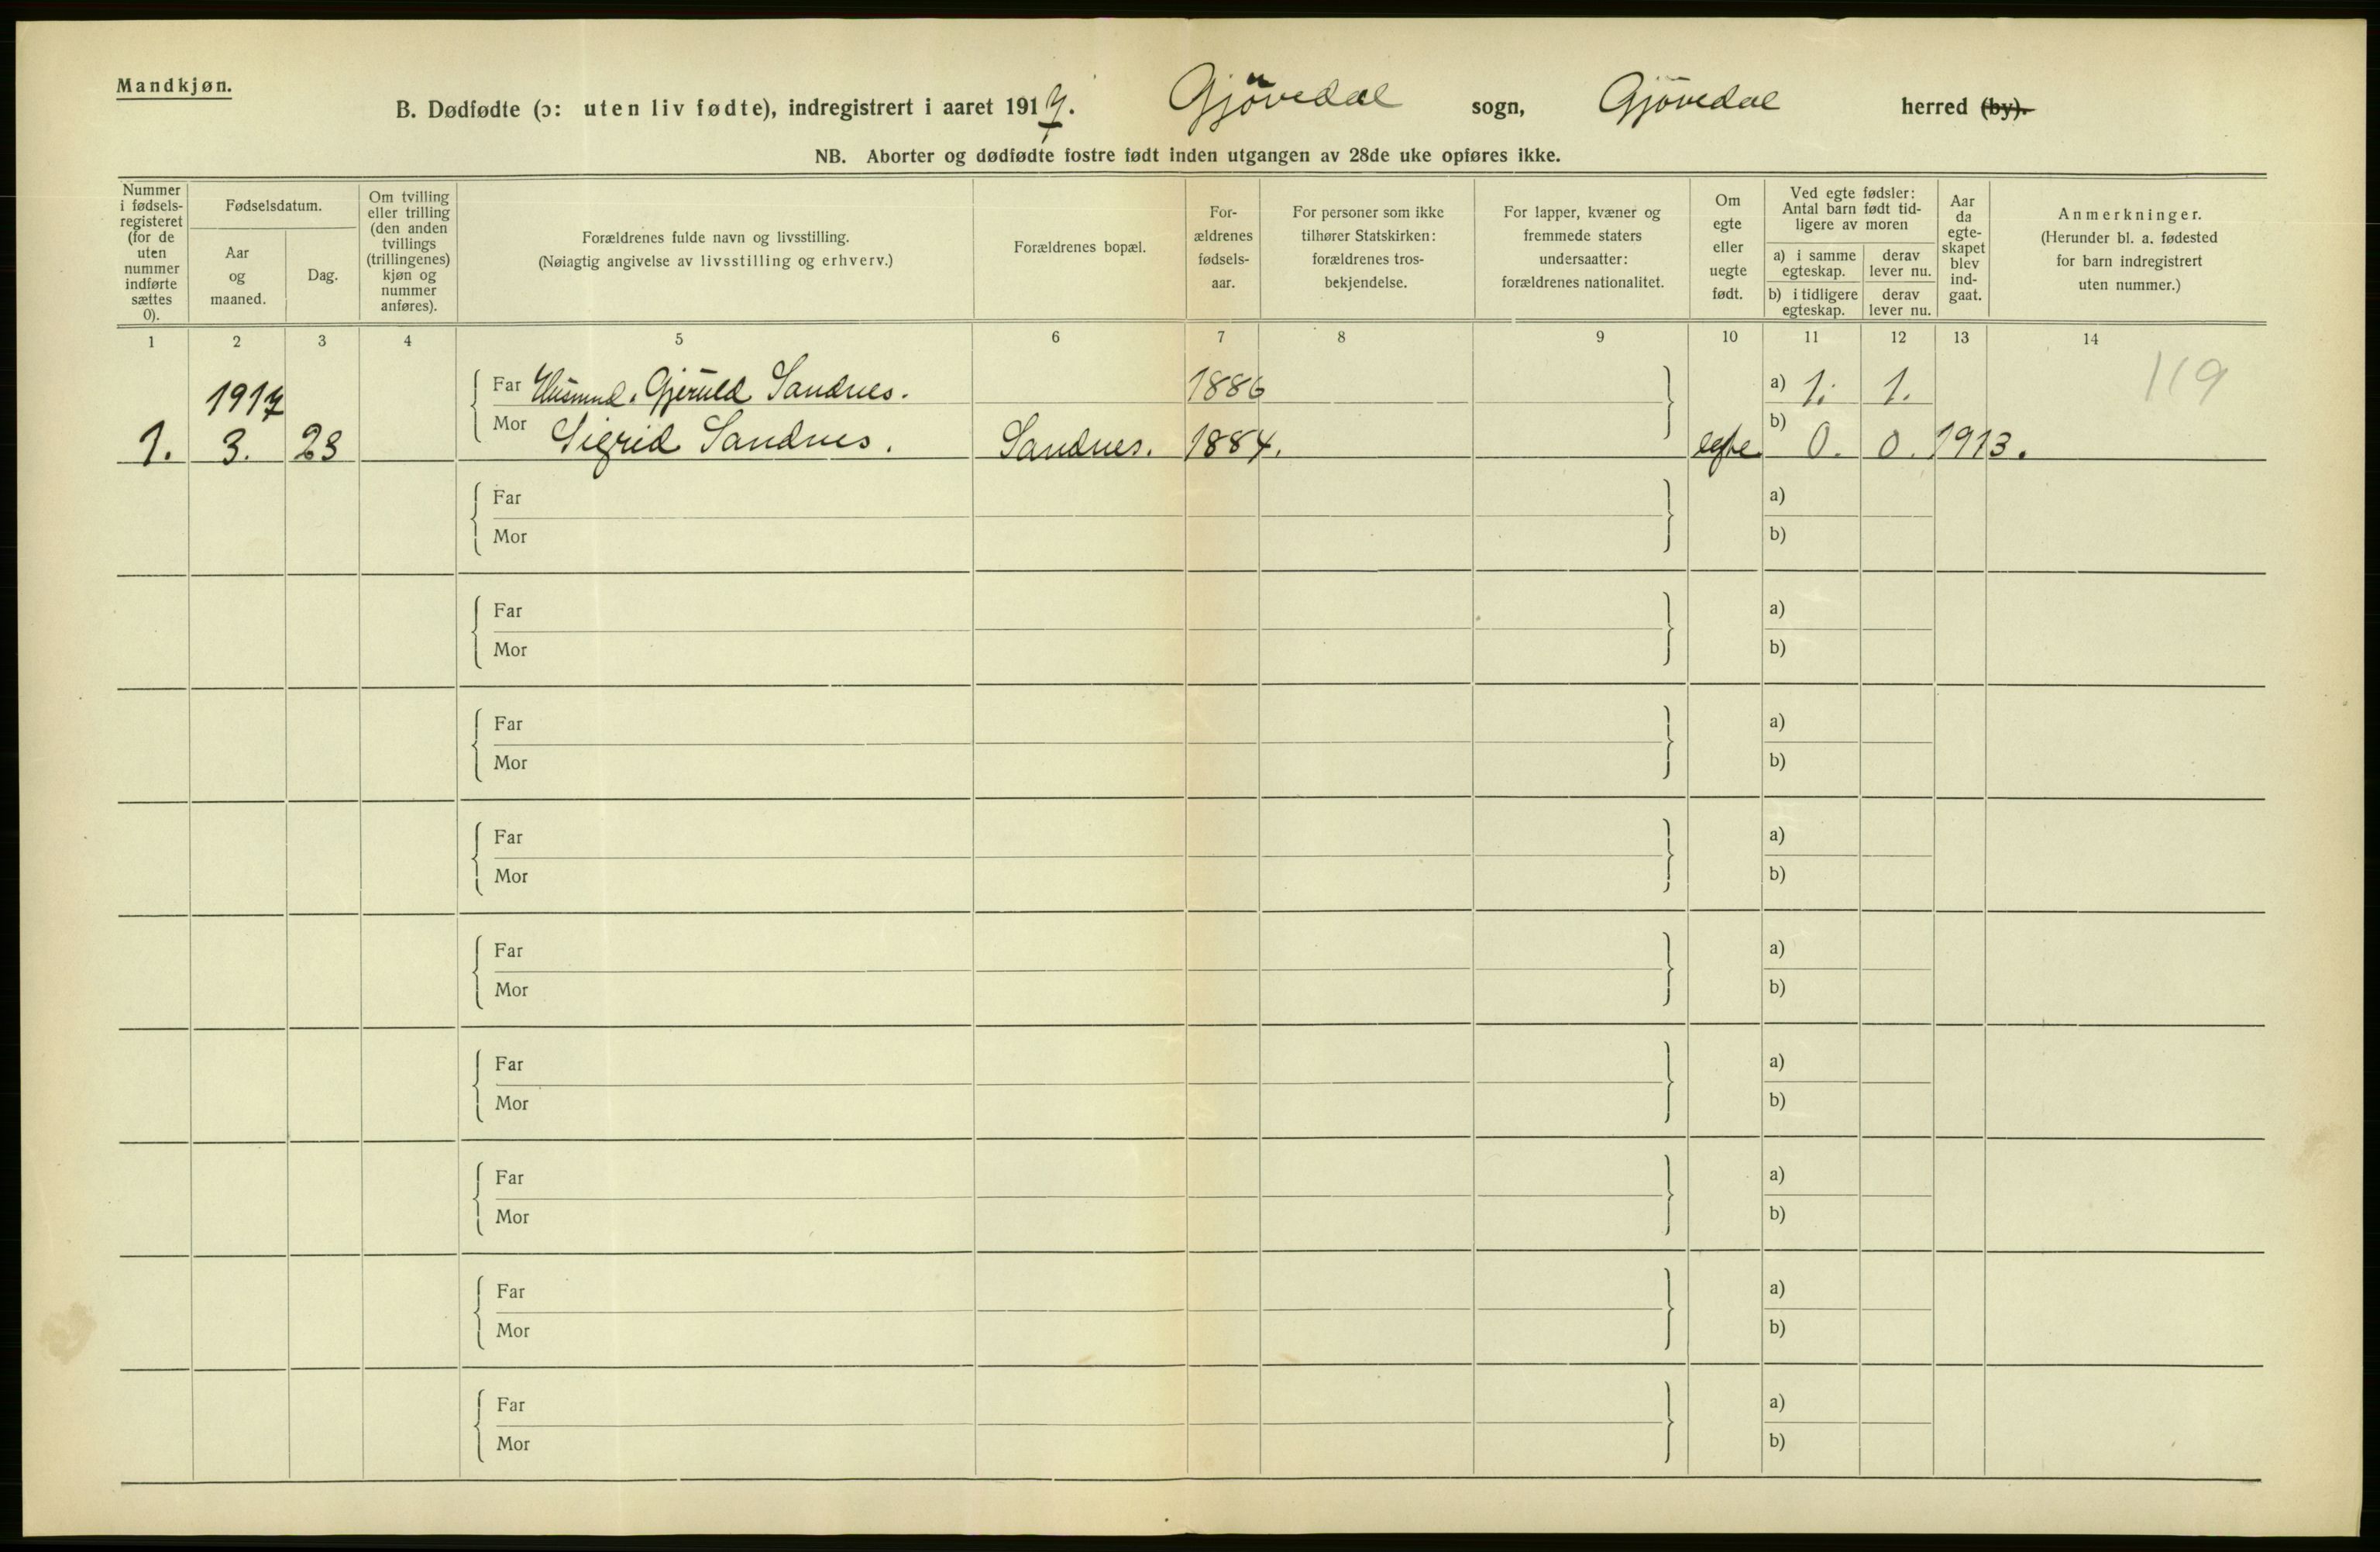 Mandkjøn.
B. Dødfødte (ɔ: uten liv fødte), indregistrert i aaret 1917. Gjövedal sogn, Gjövedal herred (by).
NB. Aborter og dødfødte fostre født inden utgangen av 28de uke opføres ikke.
Nummer i fødsels-registeret (for de uten nummer indførte sættes 0).
Fødselsdatum.
Aar og maaned.
Dag.
Om tvilling eller trilling (den anden tvillings (trillingenes) kjøn og nummer anføres).
Forældrenes fulde navn og livsstilling.
(Nøiagtig angivelse av livsstilling og erhverv.)
Forældrenes bopæl.
For-ældrenes fødsels-aar.
For personer som ikke tilhører Statskirken: forældrenes tros-bekjendelse.
For lapper, kvæner og fremmede staters undersaatter: forældrenes nationalitet.
Om egte eller uegte født.
Ved egte fødsler: Antal barn født tid-ligere av moren
a) i samme egteskap. derav lever nu.
b) i tidligere egteskap. derav lever nu.
Aar da egte-skapet blev ind-gaat.
Anmerkninger.
(Herunder bl. a. fødested for barn indregistrert uten nummer.)
1 2 3 4 5 6 7 8 9 10 11 12 13 14
1917 Far Husmnd. Gjeruld Sandnes. 1886 a) 1. 1. 119
1. 3. 23 Mor Sigrid Sandnes. Sandnes. 1884. egte b) 0. 0. 1913.
Far a)
Mor b)
Far a)
Mor b)
Far a)
Mor b)
Far a)
Mor b)
Far a)
Mor b)
Far a)
Mor b)
Far a)
Mor b)
Far a)
Mor b)
Far a)
Mor b)